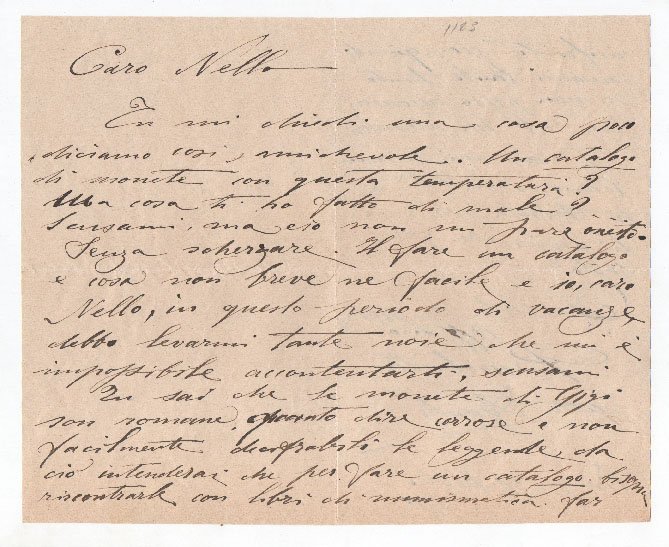 1183
Caro Nello
Tu mi chiedi una cosa poco
diciamo così, amichevole. Un catalogo
di monete con questa temperatura?
Ma cosa ti ho fatto di male?
Scusami, ma ciò non mi pare onesto.
Senza scherzare. Il fare un catalogo
è cosa non breve ne facile e io, caro
Nello, in questo periodo di vacanze,
debbo levarmi tante noie che mi è
impossibile accontentarti, scusami
Tu sai che le monete di Gigi
son romane, dire corrose e non
facilmente le leggende, da
ciò intenderai che per fare un catalogo bisogna
riscontrarle con libri di numismatica. Far